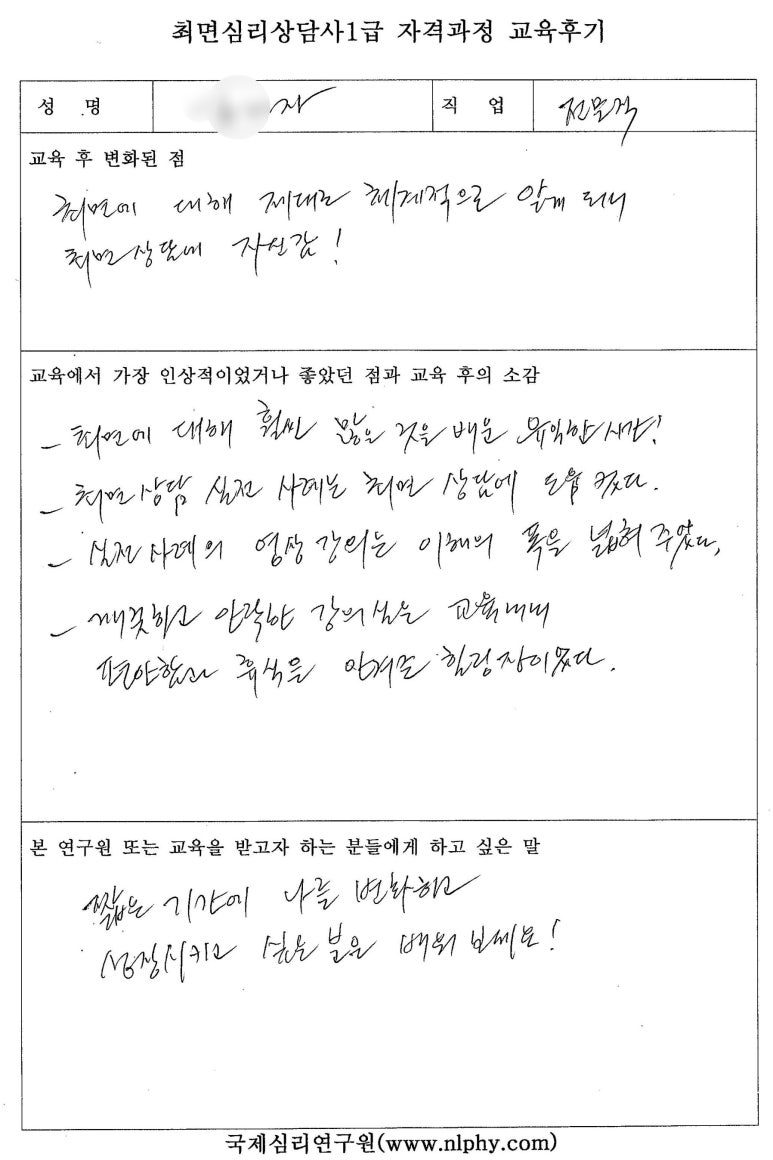 최면심리상담사1급 자격과정 교육후기
성 명 자 직 업 전문직
교육 후 변화된 점
최면에 대해 제대로 체계적으로 알게 되니
최면상담에 자신감!
교육에서 가장 인상적이었거나 좋았던 점과 교육 후의 소감
- 최면에 대해 훨씬 많은 것을 배운 유익한 시간!
- 최면상담 실전 사례는 최면 상담에 도움 컸다.
- 실전사례의 영상강의는 이해의 폭을 넓혀 주었다.
- 깨끗하고 안락한 강의실은 교육내내
편안함과 휴식을 안겨준 힐링장이었다.
본 연구원 또는 교육을 받고자 하는 분들에게 하고 싶은 말
짧은 기간에 나를 변화하고
성장시키고 싶은 분은 배워 보세요!
국제심리연구원(www.nlphy.com)